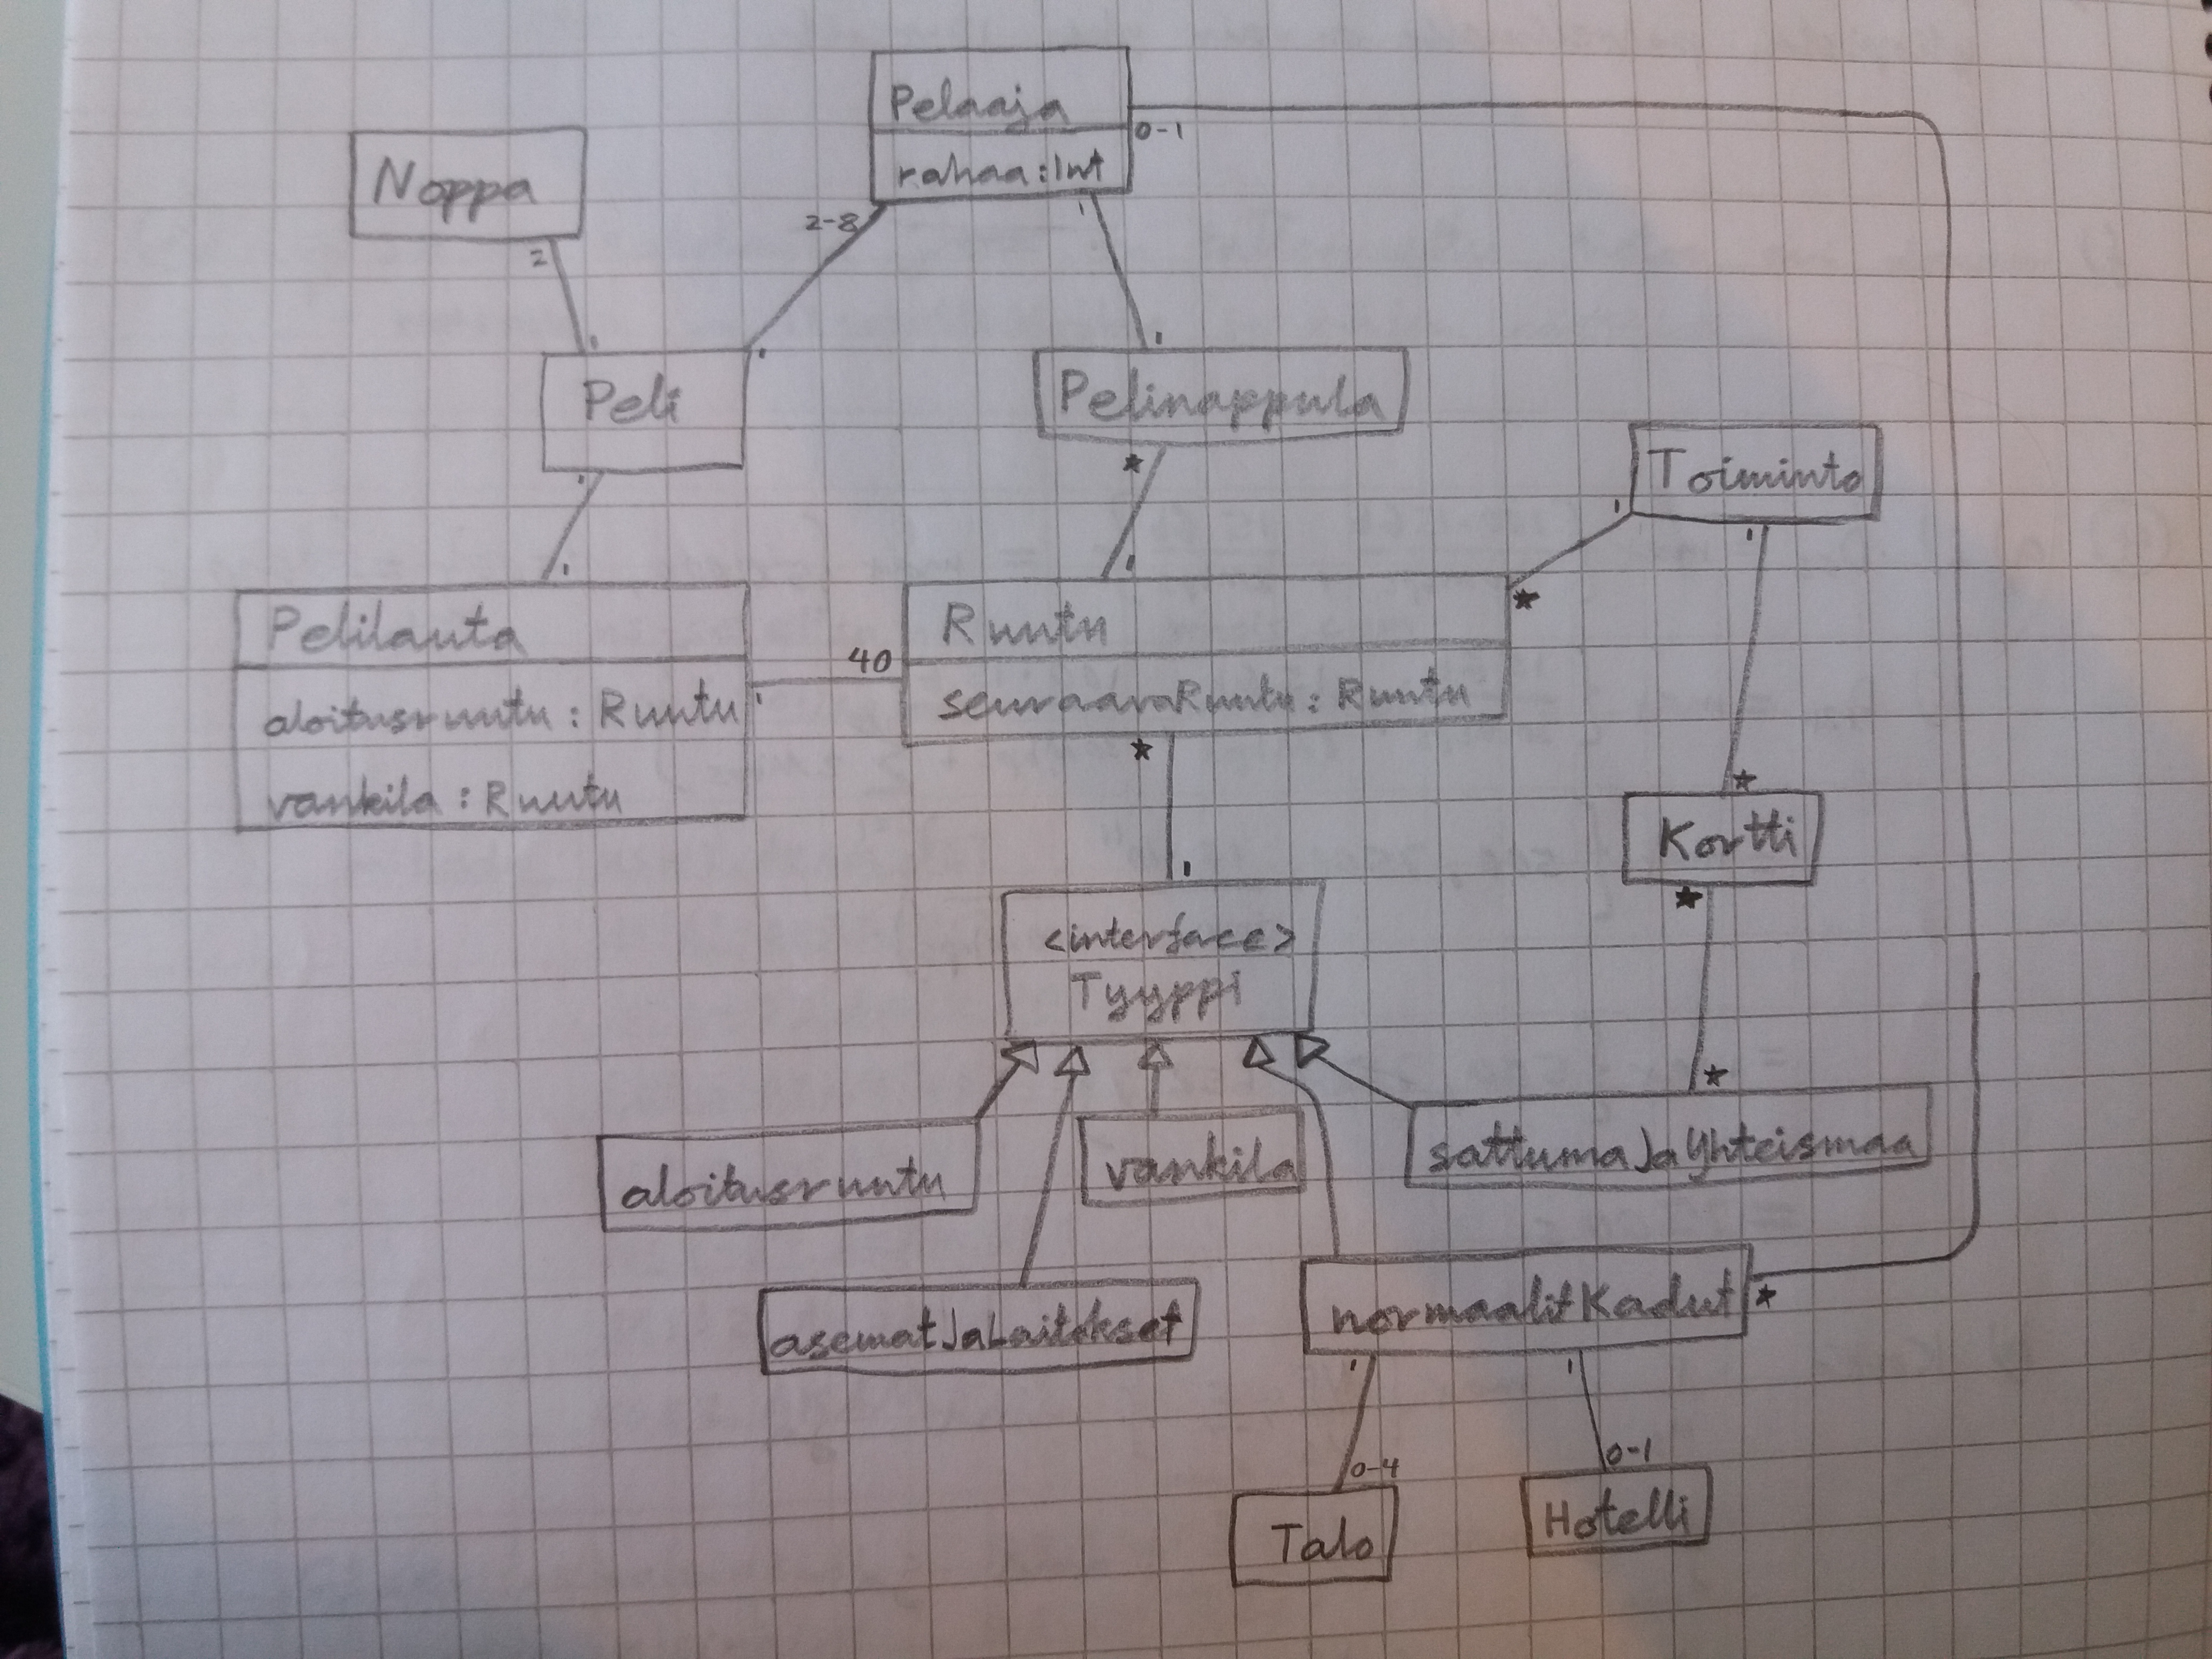 Pelaaja
0-1
rahaa: Int
Noppa
2-8
1
2
1
1
1
Peli
Pelinappula
1
*
Toiminto
1
1
1
1
*
Pelilauta
Ruutu
40
aloitusruutu : Ruutu
1
seuraavaRuutu : Ruutu
vankila : Ruutu
*
*
Kortti
1
*
<interface>
Tyyppi
*
aloitusruutu
vankila
sattumaJaYhteismaa
asematJaLaitokset
normaalitKadut
*
1
1
0-4
0-1
Talo
Hotelli